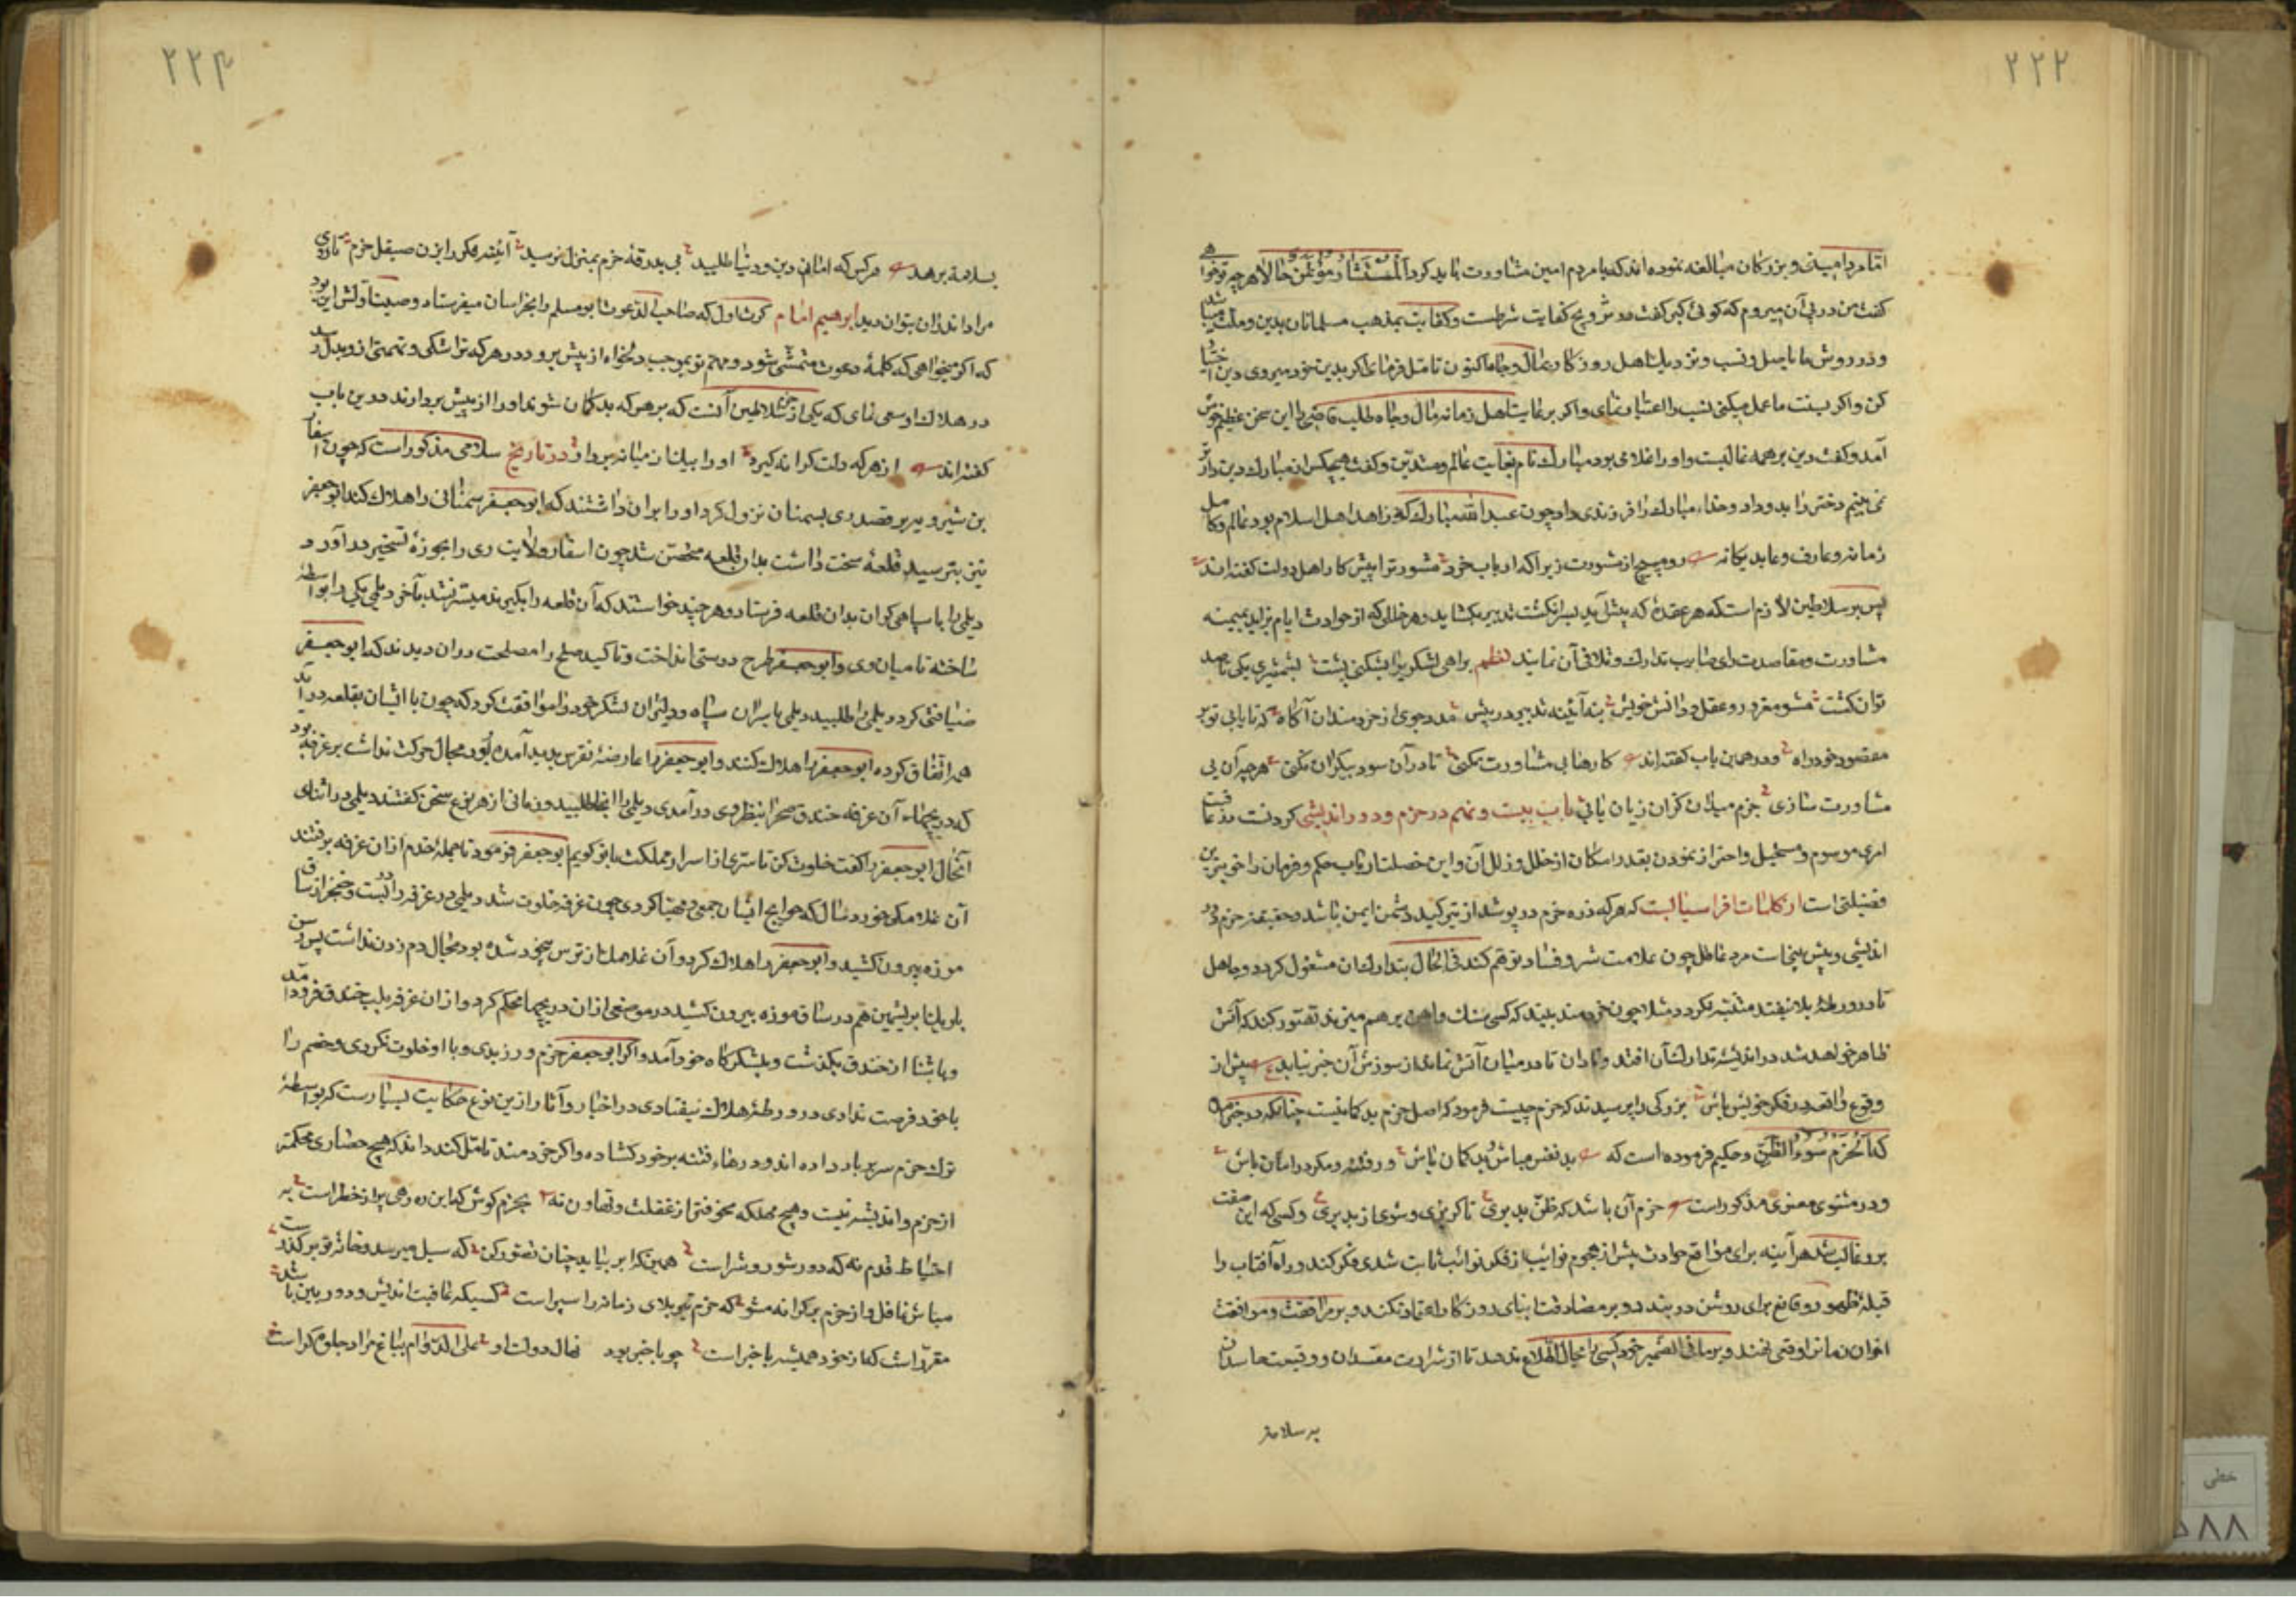 ۲۲۲
امام مرد امینی و بزرگان مبالغه نموده اند که با مردم امین مشاورت باید کرد المستشار مؤتمن حالا هر چه تو خواهی
گفت من در پی آن میروم که کوئی گبر گفت در تزویج کفایت شرطست و کفایت بمذهب مسلمانان بدین و ملت باشد
و در روش ما باصل و نسب و نزدیك اهل روزکار بمال و جاه اکنون تامل فرما اگر بدین خود میروی دین اختیار
کن و اکر بسنت ما عمل میکنی نسب را اعتبار نمای و اکر برغایت اهل زمانه مال و جاه طلب قاضی را این سخن عظیم خوش
آمد و گفت دین بر همه غالبست و او را غلامی بود مبارك نام بغایت عالم و متدین و گفت هیچکس از مبارك دین دارتر
نمی بینم دختر را بدو داد و خدا مبارك را فرزندی داد چون عبد الله مبارك که زاهد اهل اسلام بود عالم و کامل
زمانه و عارف و عابد یکانه رو مپیچ از مشورت زیرا که ارباب خرد مشورت را پیش کار اهل دولت گفته اند
پس بر سلاطین لازم است که هر عقدهٔ که پیش آید بسر انکشت تدبیر بکشاید و هر خللی که از حوادث ایام بزاید بمیمنه
مشاورت و مقاصدت رای صایب تدارك و تلافی آن نمایند نظم براهی لشکری را بشکنی پشت بشمشیری یکی تا صد
توان کشت مشو مغرور و عقل و دانش خویش بنه آئینه تدبیر در پیش مدد جوی از خردمندان آکاه که تا یابی تو بر
مقصود خود راه و در همین باب گفته اند کارها بی مشاورت نکنی تا در آن سود بیکران نکنی هرچه آن بی
مشاورت سازی جزم میدان کزان زیان یابی باب بیست و نهم در حزم و دوراندیشی کردنست در عاقبت
امری موسوم و مستحیل و احتراز نمودن بقدر امکان از خلل و زلل آن و این خصلت ارباب حکم و فرمان را خوبترین
فضیلتی است از کلمات افراسیابست که هر که زره حزم در پوشد از تیر کید دشمن ایمن باشد و حقیقت حزم دور
اندیشی و پیش بینی است مرد عاقل چون علامت شر و فساد توهم کند فی الحال بتدارك آن مشغول کردد و جاهل
تا در ورطهٔ بلا نیفتد متنبه نکردد مثلا چون خردمند بیند که کسی سنك و آهن بر هم میزند تصور کند که آتش
ظاهر خواهد شد در اندیشه تدارك آن افتد و نادان تا در میان آتش نماند از سوزش آن خبر نیابد پیش از
وقوع واقعه در فکر خویش باش بزرکی را پرسیدند که حزم چیست فرمود که اصل حزم بد کمانیست چنانکه در خبر آمده
که الحزم سوء الظن و حکیم فرموده است که بد نفس مباش و بد کمان باش وز فتنه و مکر در امان باش
و در مثنوی معنوی مذکور است حزم آن باشد که ظن بد بری تا کریزی و شوی از بد بری و کسی که این صفت
برو غالب شد هر آینه برای مواقع حوادث پیش از هجوم نوائب از فکر نوائب ثابت شدی فکر کند و راه آفتاب را
قبلهٔ ظهور وقایع برای روشن در بندد و بر مصادقت ابنای روزکار اعتماد نکند و بر مرافقت و موافقت
اخوان زمانه وقعی ننهد و بر ما فی الضمیر خود کسی را مجال اطلاع ندهد تا از شرارت مفسدان و وقیعت حاسدان
به سلامت
۲۲۳
بسلامة برهد هر کس که امانی دین و دنیا طلبید بی بدرقهٔ حزم بمنزل نرسید آئینه فکر را بزن صیقل حزم تا روی
مراد اندران بتوان دید ابراهیم امام کرت اول که صاحب الدعوت ابو مسلم را بخراسان میفرستاد وصیت اولش این بود
که اکر میخواهی که کلمهٔ دعوت متمشی شود و مهم تو بموجب دلخواه از پیش برود در هر که ترا شکی و تهمتی ازو بدل رسد
در هلاك او سعی نمای که یکی از حزم سلاطین آنست که بر هر که بد کمان شوند او را از پیش بردارند در ین باب
گفته اند از هر که دلت کرانه کیرد او را بیلتان میانه بردار در تاریخ سلامی مذکور است که چون اسفار
بن شیرویه بر قصد ری بسمنان نزول کرد او را بران داشتند که ابو جعفر سمنانی را هلاك کند ابو جعفر
نیز بترسید قلعهٔ سخت داشت بدان قلعه متحصن شد چون اسفار ولایت ری را بحوزهٔ تسخیر در آورد
دیلمی را با سپاهی کران بدان قلعه فرستاد و هر چند خواستند که آن قلعه را بگیرند میسر نشد بآخر دیلمی یکی را بواسطه
ساخته تا میان وی و ابو جعفر طرح دوستی انداخت و تاکید صلح را مصلحت دران دیدند که ابو جعفر
ضیافتی کرد و دیلمی را طلبید دیلمی با سران سپاه و دلیران لشکر خود را موافقت کرد که چون با ایشان بقلعه در آید
همه اتفاق کرده ابو جعفر را هلاك کنند و ابو جعفر را عارضهٔ نقرس پدید آمده بود مجال حرکت نداشت بر غرفهٔ بود
که دریچهاء آن غرفه خندق صحرا بنظر وی در آمدی دیلمی را آنجا طلبید و زمانی از هر نوع سخن گفتند دیلمی در اثنای
آنحال ابو جعفر را گفت خلوت کن تا سری از اسرار مملکت با تو کویم ابو جعفر فرمود تا جملهٔ خدم از ان غرفه برفتند
آن غلامکی خورد سال که حوایج ایشان جمعی و مهیا کردی چون غرفه خلوت شد دیلمی در غرفه را در بست و خنجر از ساق
موزه بیرون کشید و ابو جعفر را هلاك کرد و آن غلامك از ترس بیخود شده بود مجال دم زدن نداشت پس رسن
باریك ابریشمین هم در ساق موزه بیرون کشید در موضعی از ان دریچها محکم کرد و از ان غرفه بلب خندق فرود آمد
و باشنا از خندق بکذشت و بلشکرکاه خود آمد و اکر ابو جعفر حزم ورزیدی و با او خلوت نکردی و خصم را
با خود فرصت ندادی در ورطهٔ هلاك نیفتادی در اخبار و آثار ازین نوع حکایت بسیارست که بواسطهٔ
ترك حزم سر بباد داده اند و درهاء فتنه بر خود کشاده و اکر خردمند تامل کند داند که هیچ حصاری محکمتر
از حزم و اندیشه نیست و هیچ مهلکه مخوفتر از غفلت و تهاون نه بحزم کوش که این ره رهی پر از خطر است به
احتیاط قدم نه که دور شور و شراست همین که ابر بیاید چنان تصور کن که سیل میرسد و خانهٔ تو بر کذرست
مباش غافل و از حزم بر کرانه مشو که حزم تیر بلای زمانه را سپر است کسیکه عاقبت اندیش و دور بین باشد
مقررست که از خود همیشه با خبر است چو با خبر بود نهال دولت او علی الدوام بباغ مراد جلوه کراست
خطی
۵۸۸